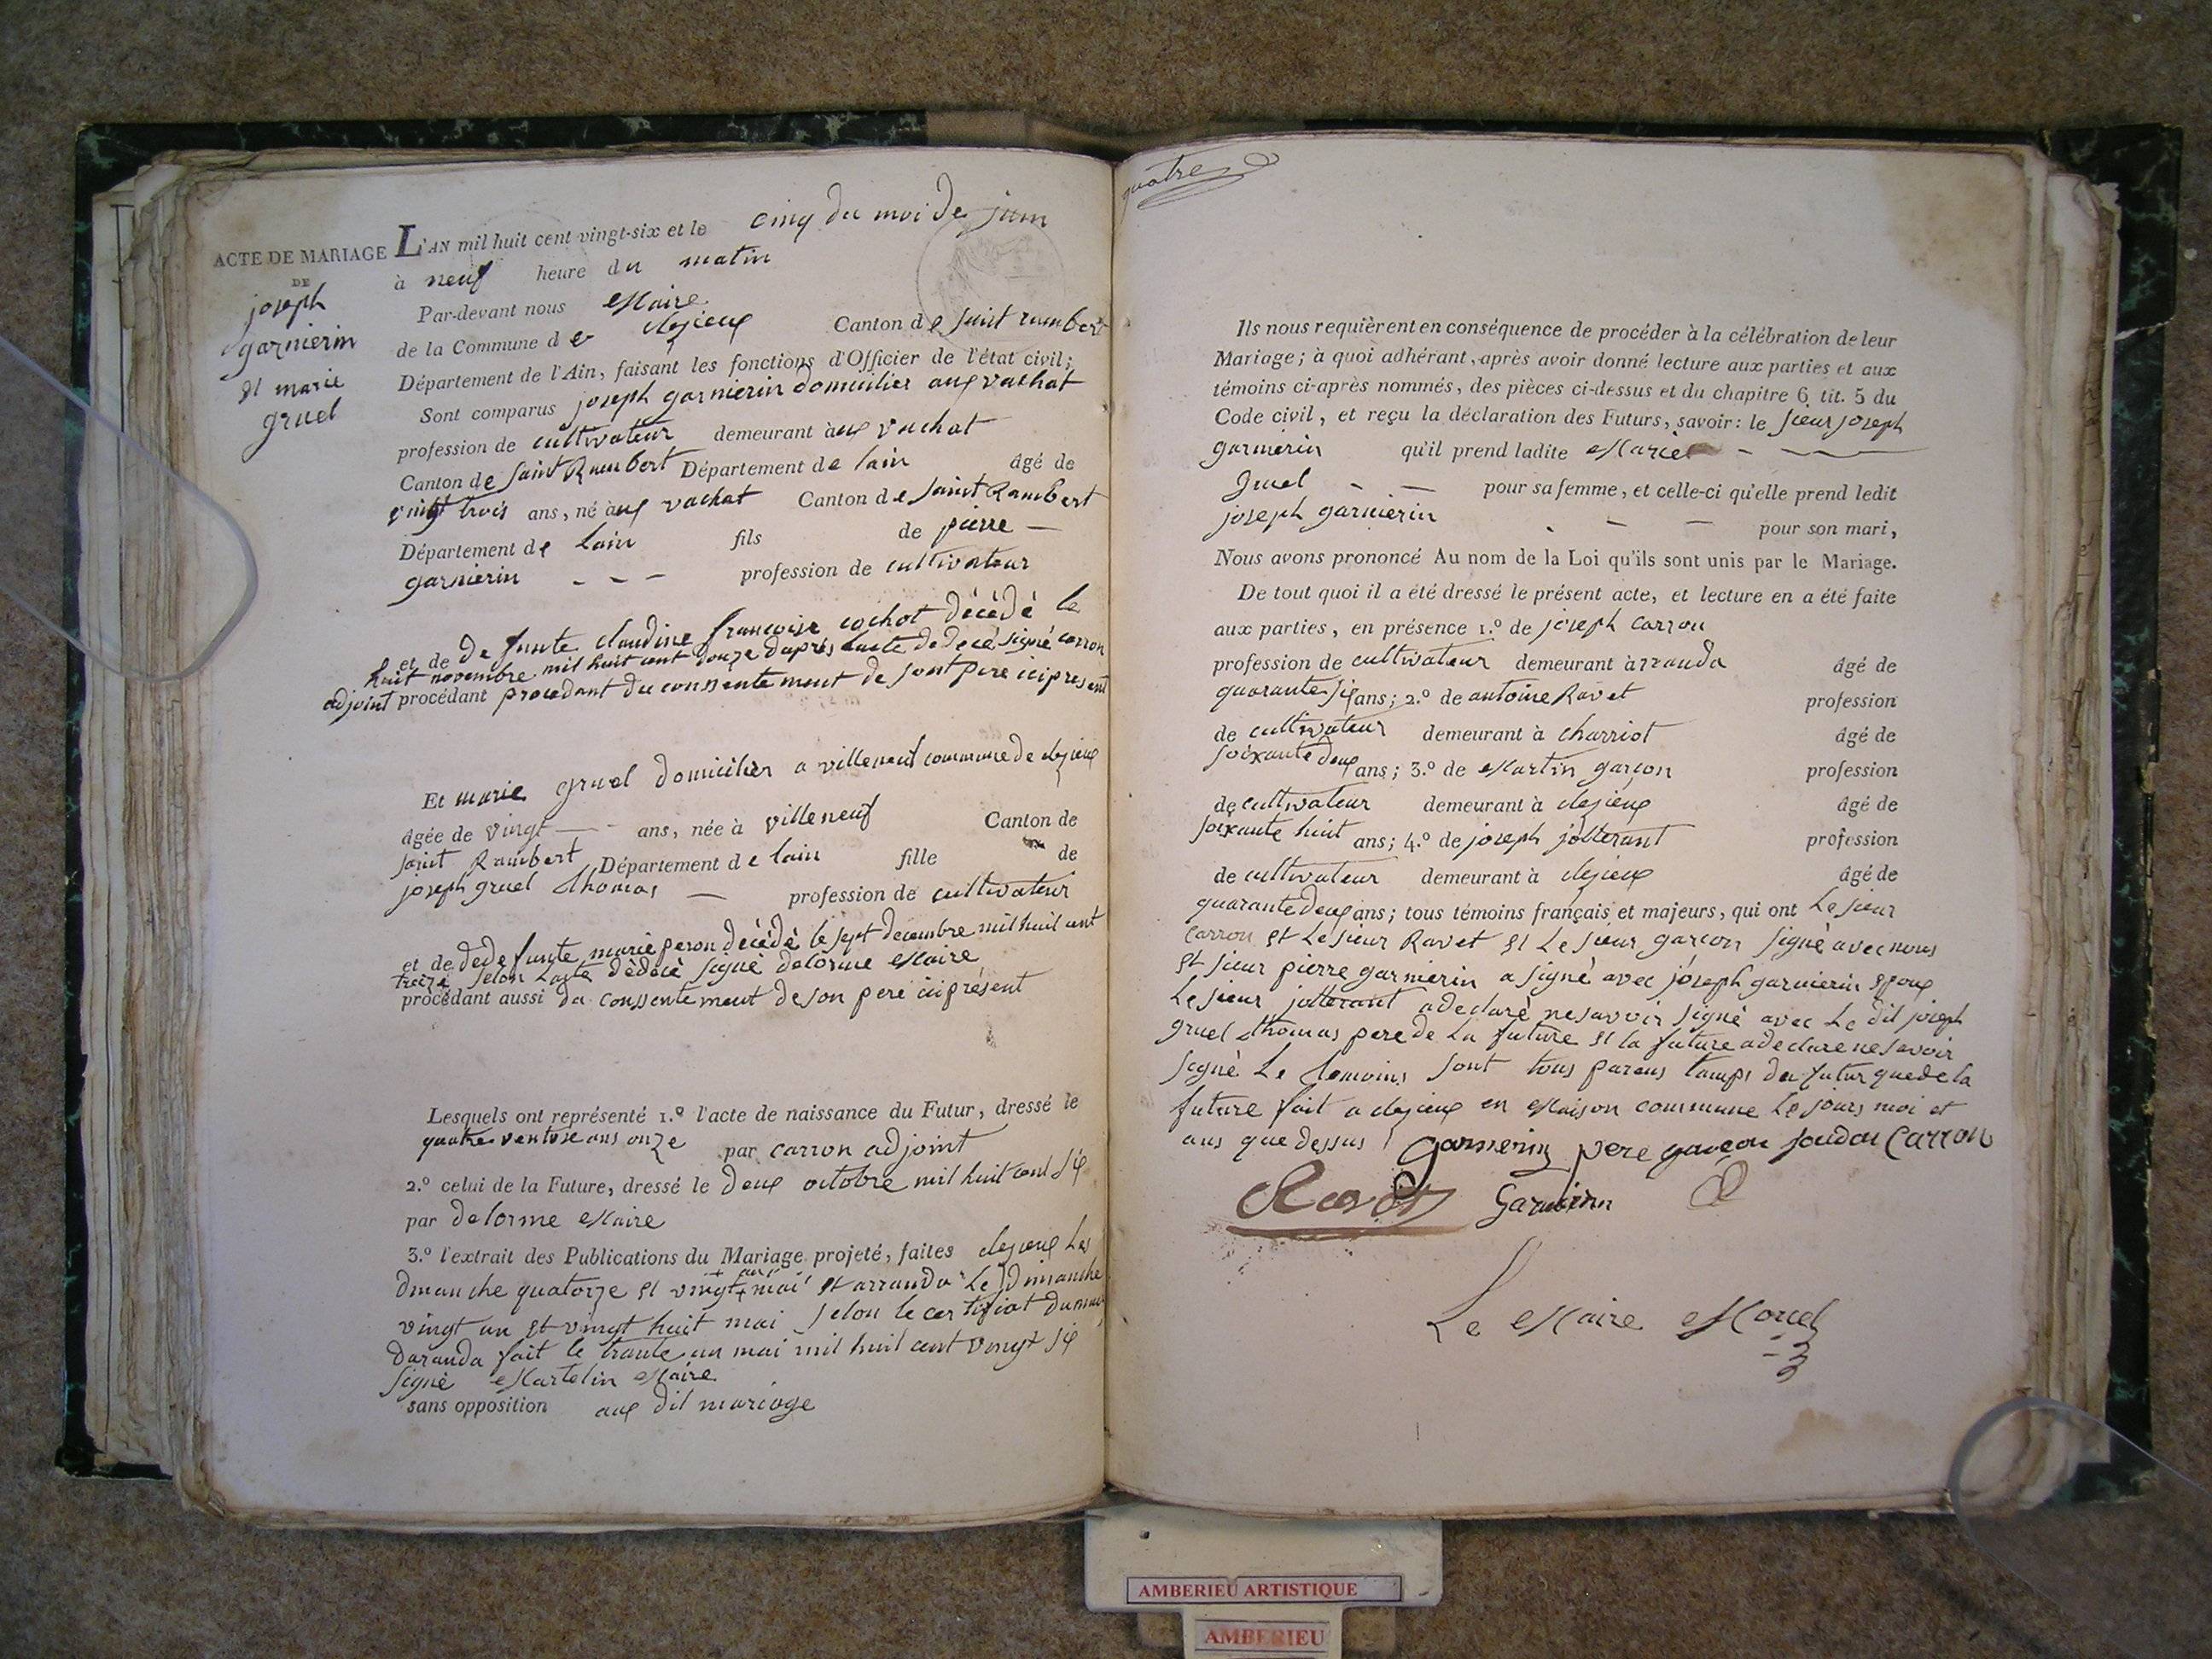 ACTE DE MARIAGE
DE
joseph
garnierin
et marie
gruel
L'AN mil huit cent vingt-six et le cinq du moi de juin
à neuf heure du matin
Par-devant nous Maire
de la Commune de clezieux Canton de saint rambert
Département de l'Ain, faisant les fonctions d'Officier de l'état civil;
Sont comparus joseph garnierin domicilier aux vachat
profession de cultivateur demeurant à aux vachat
Canton de saint Rambert Département de lain âgé de
vingt trois ans, né à aux vachat Canton de saint Rambert
Département de lain fils de pierre —
garnierin - - - profession de cultivateur
et de defunte claudine francoise cochot décèdé le
huit novembre mil huit cent douze daprés lacte de decé signé carron
adjoint procédant procedant du conssentement de sont pere ici present
Et marie gruel domicilier a villeneuf commune de clezieux
âgée de vingt — - ans, née à villeneuf Canton de
saint Rambert Département de lain fille de
joseph gruel thomas — profession de cultivateur
et de dedefunte marie peron decèdè le sept decembre mil huit cent
treize selon Lacte dèdécè signé delorme Maire
procédant aussi du conssentement de son pere ici présent
Lesquels ont représenté 1.º l'acte de naissance du Futur, dressé le
quatre ventose ans onze par carron adjoint
2.º celui de la Future, dressé le deux octobre mil huit cent six
par delorme Maire
3.º l'extrait des Publications du Mariage projeté, faites clezieux Les
dmanche quatorze et vingt + mai et arranda Le dimanche
vingt un et vingt huit mai selon le certificat du mair
daranda fait le trante un mai mil huit cent vingt six
signé Martelin Maire
sans opposition aux dit mariage
quatre
Ils nous requièrent en conséquence de procéder à la célébration de leur
Mariage; à quoi adhérant, après avoir donné lecture aux parties et aux
témoins ci-après nommés, des pièces ci-dessus et du chapitre 6 tit. 5 du
Code civil, et reçu la déclaration des Futurs, savoir: le sieur joseph
garnierin qu'il prend ladite Marie - ———
gruel - — pour sa femme, et celle-ci qu'elle prend ledit
joseph garnierin - — — pour son mari,
Nous avons prononcé Au nom de la Loi qu'ils sont unis par le Mariage.
De tout quoi il a été dressé le présent acte, et lecture en a été faite
aux parties, en présence 1.º de joseph carron
profession de cultivateur demeurant à arranda âgé de
quarante six ans; 2.º de antoine Ravet profession
de cultivateur demeurant à charriot âgé de
soixante deux ans; 3.º de Martin garcon profession
de cultivateur demeurant à clezieux âgé de
soixante huit ans; 4.º de joseph jolterant profession
de cultivateur demeurant à clezieux âgé de
quarante deux ans; tous témoins français et majeurs, qui ont Le sieur
carron et Le sieur Ravet et Le sieur garcon signé avec nous
et sieur pierre garnierin a signé avec joseph garnierin epoux
Le sieur jolterant a declaré ne savoir signé avec Le dit joseph
gruel thomas pere de La future et la future a declare ne savoir
signé Le temoins sont tous parens tamps du futur que de la
future fait a clezieux en Maison commune Le jours moi et
ans que dessus garnerin pere garcon Carron
Ravet Garnierin
Le Maire Morel
AMBERIEU ARTISTIQUE
AMBERIEU